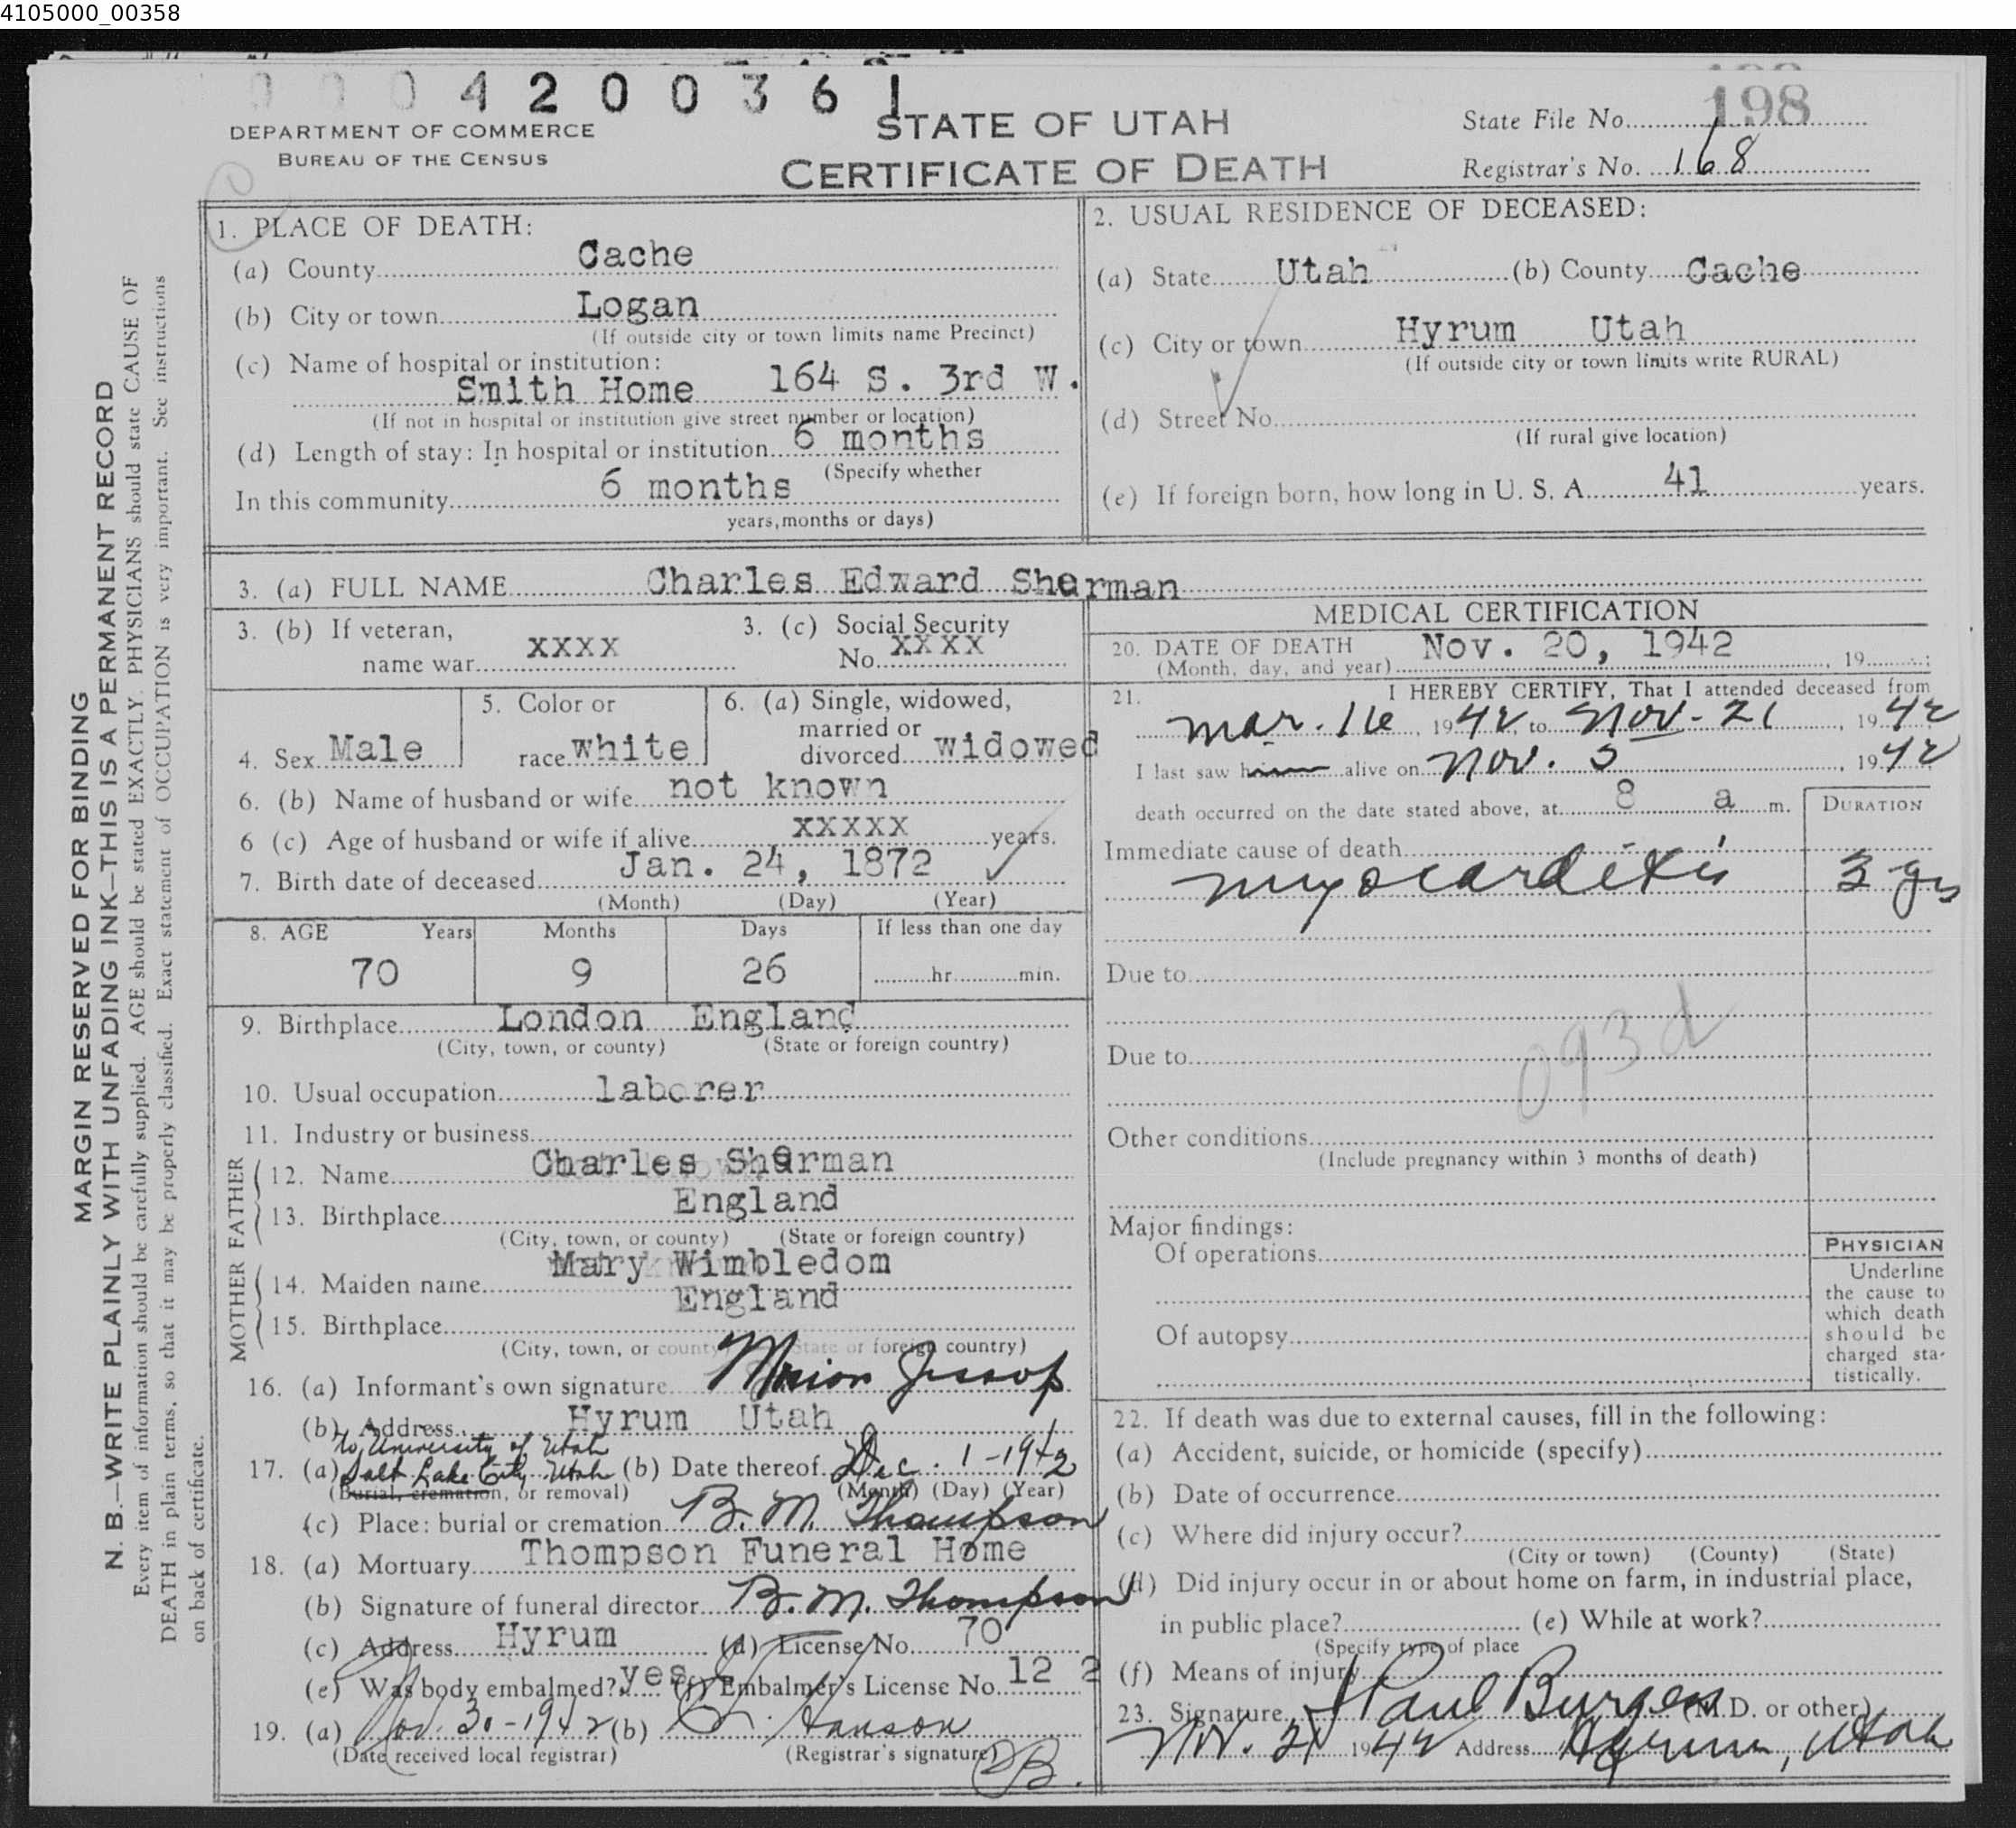 4105000_00358
0004200361
DEPARTMENT OF COMMERCE
BUREAU OF THE CENSUS
STATE OF UTAH
CERTIFICATE OF DEATH
State File No. 198
Registrar's No. 168
MARGIN RESERVED FOR BINDING
N. B.—WRITE PLAINLY WITH UNFADING INK—THIS IS A PERMANENT RECORD
Every item of information should be carefully supplied. AGE should be stated EXACTLY. PHYSICIANS should state CAUSE OF
DEATH in plain terms, so that it may be properly classified. Exact statement of OCCUPATION is very important. See instructions
on back of certificate.
1. PLACE OF DEATH:
(a) County Cache
(b) City or town Logan
(If outside city or town limits name Precinct)
(c) Name of hospital or institution:
Smith Home 164 S. 3rd W.
(If not in hospital or institution give street number or location)
(d) Length of stay: In hospital or institution 6 months
(Specify whether
In this community 6 months
years, months or days)
2. USUAL RESIDENCE OF DECEASED:
(a) State Utah (b) County Cache
(c) City or town Hyrum Utah
(If outside city or town limits write RURAL)
(d) Street No.
(If rural give location)
(e) If foreign born, how long in U. S. A. 41 years.
3. (a) FULL NAME Charles Edward Sherman
3. (b) If veteran,
name war xxxx
3. (c) Social Security
No. xxxx
4. Sex Male
5. Color or
race white
6. (a) Single, widowed,
married or
divorced widowed
6. (b) Name of husband or wife not known
6 (c) Age of husband or wife if alive xxxxx years.
7. Birth date of deceased Jan. 24, 1872
(Month) (Day) (Year)
8. AGE Years Months Days If less than one day
70 9 26 hr. min.
9. Birthplace London England
(City, town, or county) (State or foreign country)
10. Usual occupation laborer
11. Industry or business
FATHER
12. Name Charles Sherman
13. Birthplace England
(City, town, or county) (State or foreign country)
MOTHER
14. Maiden name Mary Wimbledom
15. Birthplace England
(City, town, or county) (State or foreign country)
16. (a) Informant's own signature Marion Jessop
(b) Address Hyrum Utah
to University of Utah
17. (a) Salt Lake City Utah (b) Date thereof Dec. 1-1942
(Burial, cremation, or removal) (Month) (Day) (Year)
(c) Place: burial or cremation B. M. Thompson
18. (a) Mortuary Thompson Funeral Home
(b) Signature of funeral director B. M. Thompson
(c) Address Hyrum (d) License No. 70
(e) Was body embalmed? yes (f) Embalmer's License No. 12 2
19. (a) Nov. 30-1942 (b) Hanson
(Date received local registrar) (Registrar's signature)
MEDICAL CERTIFICATION
20. DATE OF DEATH Nov. 20, 1942
(Month, day, and year) , 19
21. I HEREBY CERTIFY, That I attended deceased from
Mar. 16, 1942, to Nov - 21, 1942
I last saw him alive on Nov. 5, 1942
death occurred on the date stated above, at 8 a m.
DURATION
Immediate cause of death
myocarditis 3 yrs
Due to
Due to
093d
Other conditions
(Include pregnancy within 3 months of death)
Major findings:
Of operations
Of autopsy
PHYSICIAN
Underline
the cause to
which death
should be
charged sta-
tistically.
22. If death was due to external causes, fill in the following:
(a) Accident, suicide, or homicide (specify)
(b) Date of occurrence
(c) Where did injury occur?
(City or town) (County) (State)
(d) Did injury occur in or about home on farm, in industrial place,
in public place? (e) While at work?
(Specify type of place
(f) Means of injury
23. Signature Paul Burgess (M.D. or other)
Nov. 21 1942 Address Hyrum, Utah